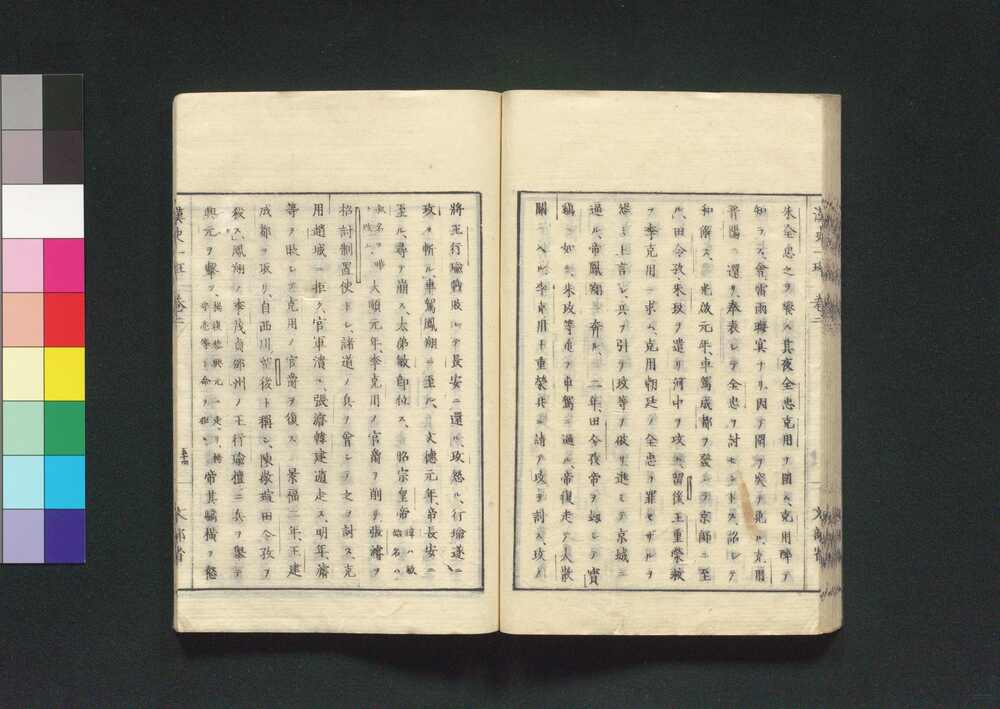 朱全忠之ヲ襲フ、其夜全忠克用ヲ圍ム、克用醉テ
知ラス、會雷雨晦冥ナリ、因テ圍ヲ突テ免ル、克用
晉陽ニ還リ、奉表シテ全忠ヲ討セントス、詔シテ
和解ス、光啟元年、車駕成都ヲ發シテ京師ニ至
ル、田令孜朱玫ヲ遣リ河中ヲ攻ム、留後王重榮救
ヲ李克用ニ求ム、克用朝廷ノ全忠ヲ罪セサルヲ
怨ミ上言シ、兵ヲ引テ玫等ヲ破リ、進テ京城ニ
逼ル、帝鳳翔ニ奔ル、二年、田令孜帝ヲ劫シテ寶
鷄ニ如ク、朱玫等追テ車駕ニ逼ル、帝復走テ大散
關ニ入ル、李克用王重榮兵ヲ請テ玫ヲ討ス、玫ノ
漢史一班 卷三
文部省
將王行瑜戰敗レテ長安ニ還ル、玫怒ル、行瑜遂ニ
玫ヲ斬ル、車駕鳳翔ニ至ル、文德元年、帝長安ニ
至ル、尋テ崩ス、太弟敏即位ス、昭宗皇帝 諱ハ敏
大順元年、李克用ノ官爵ヲ削リ、張濬ヲ
招討制置使トシ、諸道ノ兵ヲ會シテ之ヲ討ス、克
用趙城ニ拒ク、官軍潰ユ、張濬韓建遁走ス、明年、濬
等ヲ貶シテ克用ノ官爵ヲ復ス、景福二年、王建
成都ヲ取リ、自西川留後ト稱シ、陳敬瑄田令孜ヲ
殺ス、鳳翔ノ李茂貞邠州ノ王行瑜擅ニ兵ヲ擧テ
興元ヲ擊ツ、帝其驕橫ヲ怒
漢史一班 卷三
文部省